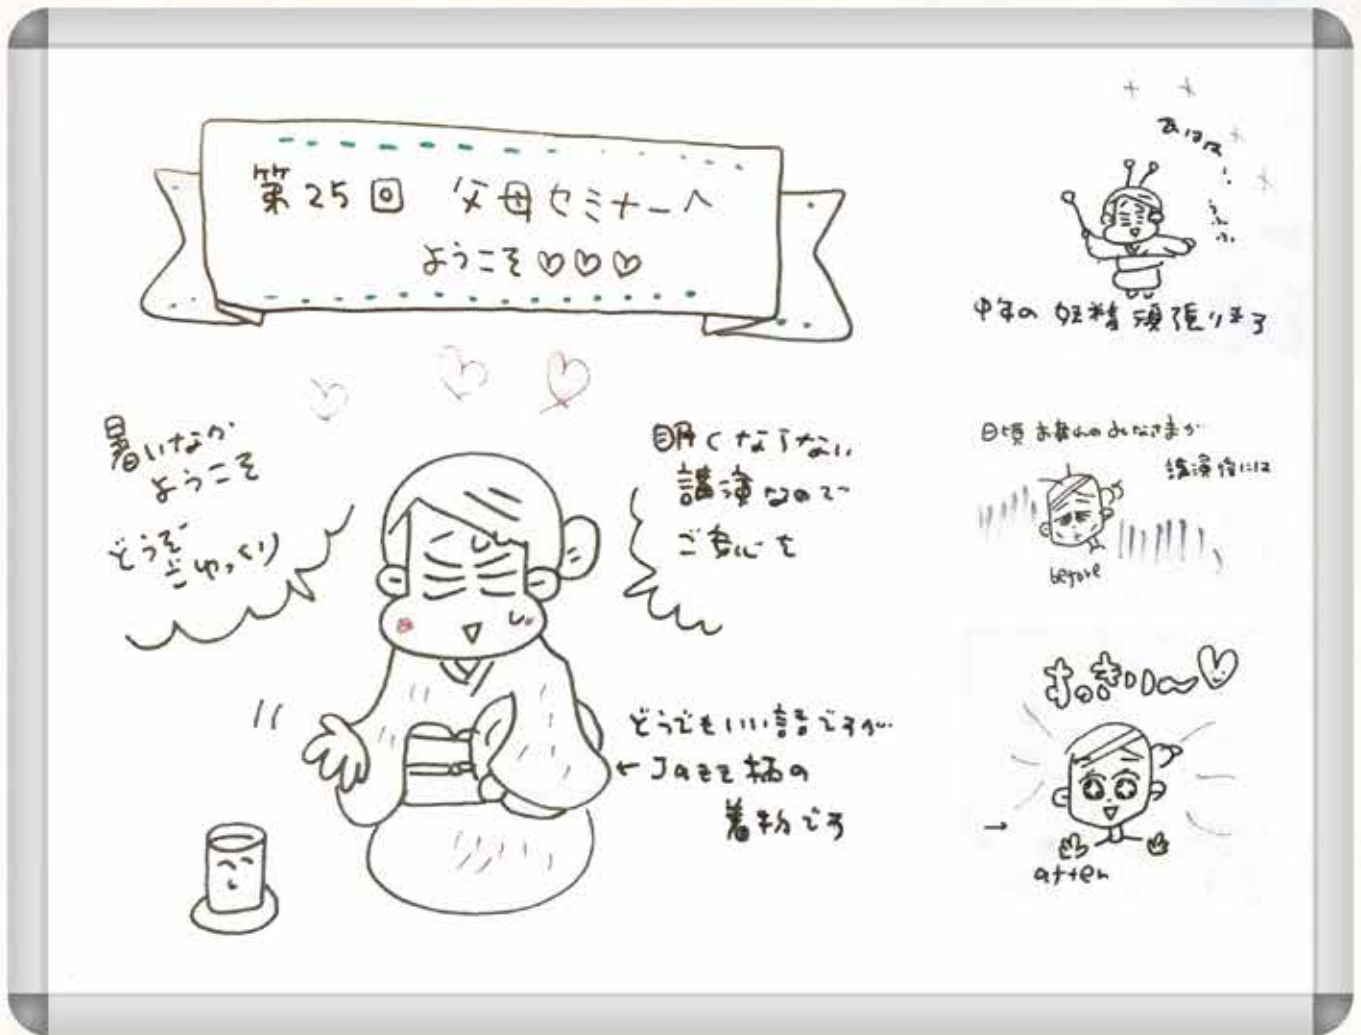 第25回 父母セミナーへ
ようこそ♡♡♡
暑いなか
ようこそ
どうぞ
ごゆっくり
眠くならない
講演なので
ご安心を
どうでもいい話ですが…
←Jazz柄の
着物です
あはは
うふふ
中年の妖精頑張ります
日頃お疲れのみなさまが
講演後には
before
すっきり〜♡
→
after